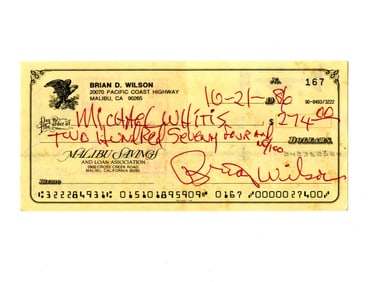 BRIAN D. WILSON 167
20070 PACIFIC COAST HIGHWAY
MALIBU, CA 90265
10-21-86 90-8493/3222
Pay to the order of Michael Whitis $274.00
Two Hundred Seventy four and no/100 DOLLARS
MALIBU SAVINGS
AND LOAN ASSOCIATION
MALIBU, CALIFORNIA 90265
Memo Brian Wilson
⑆322284931⑆ 015101895909⑈ 0167 ⑈0000027400⑈